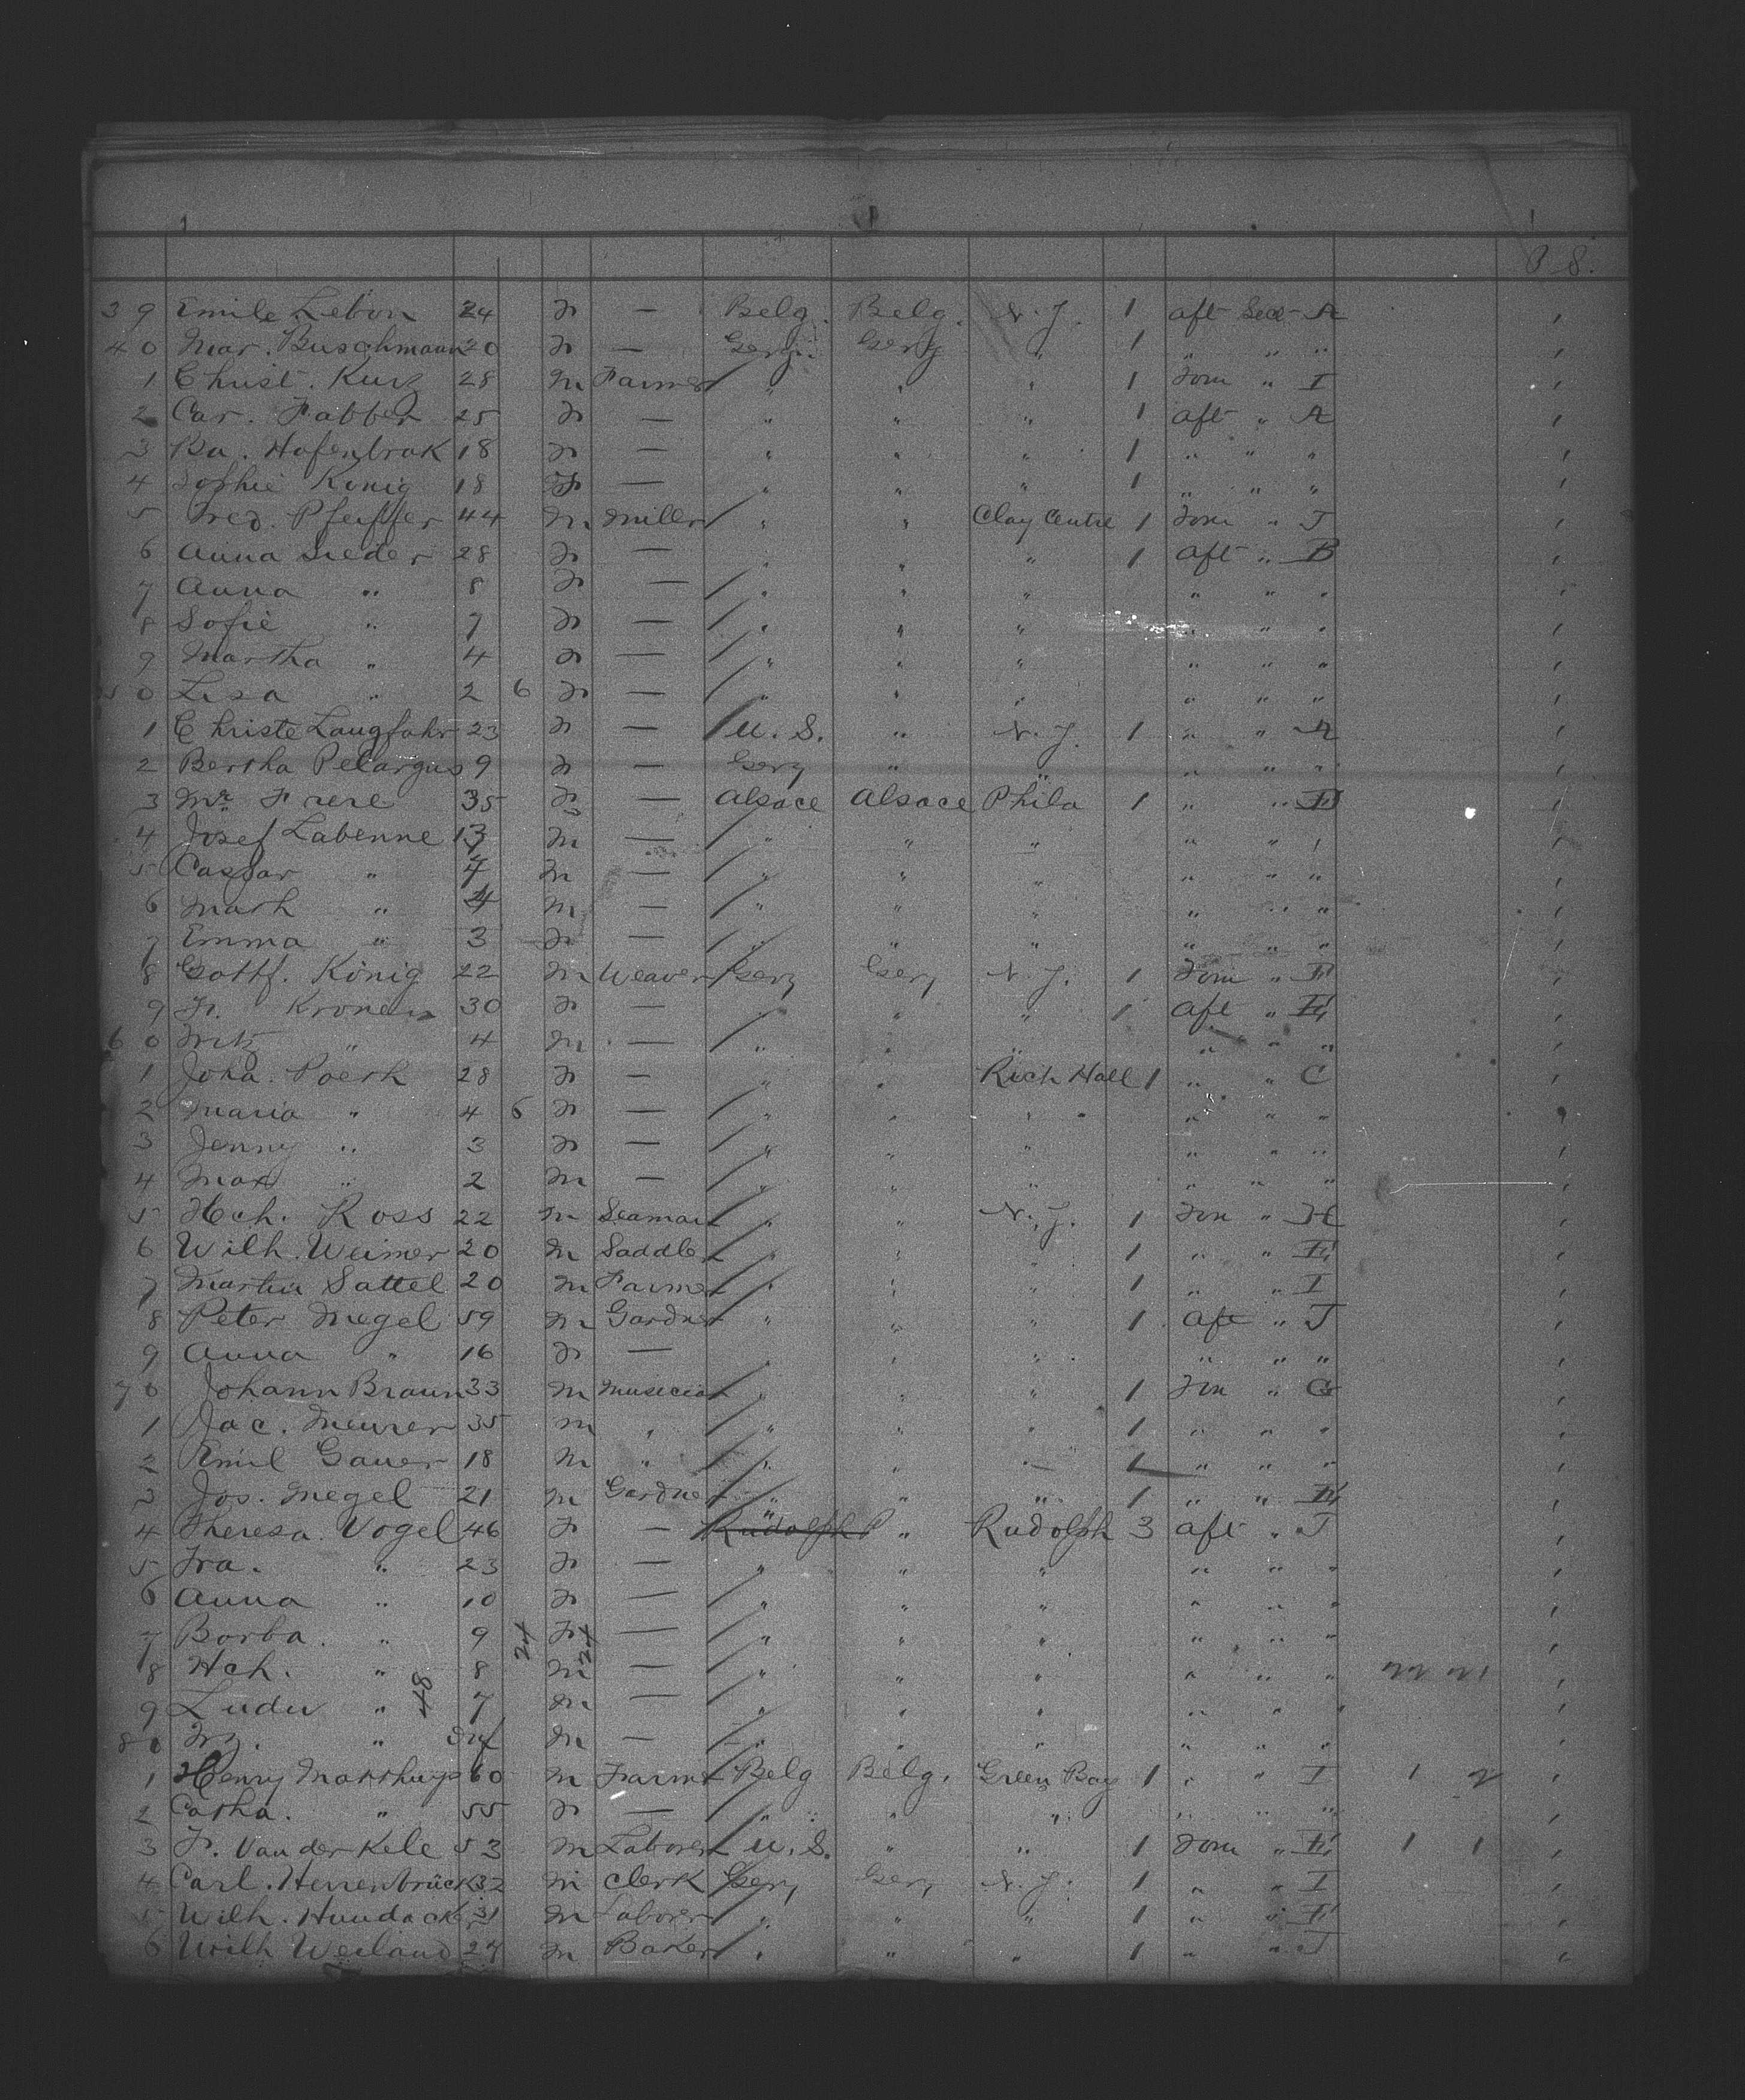 P 8.
39 Emile Lebon 24 F — Belg. Belg. N.Y. 1 aft Sect A
40 Mar. Buschmann 20 F — Gery. Gery " 1 " " "
1 Christ. Kurz 28 M Farmer " " " 1 Forw " I
2 Car. Fabber 25 F — " " " 1 aft " A
3 Ba. Hafenbrak 18 F — " " " 1 " " "
4 Sophie Konig 18 F — " " " 1 " " "
5 Fred. Pfeiffer 44 M Miller " " Clay Centre 1 Forw " J
6 Anna Sieder 28 F — " " " 1 aft " B
7 Anna " 8 F — " " " " " "
8 Sofie " 7 F — " " " " " "
9 Martha " 4 F — " " " " " "
50 Lisa " 2 6 F — " " " " " "
1 Christe Langfahr 23 F — U.S. " N.Y. 1 " " A
2 Bertha Pelargus 9 F — Gery " " " " "
3 Mr. Frere 35 F — Alsace Alsace Phila 1 " "
4 Josef Labenne 13 M — " " " " "
5 Caspar " 7 M — " " " " " "
6 Marh " 4 M — " " " " " "
7 Emma " 3 F — " " " " " "
8 Gottf. König 22 M Weaver Gery Gery N.Y. 1 Forw " E
9 Fr. Kronen 30 F — " " " 1 aft " E
60 Fritz " 4 M — " " " " " "
1 Joha. Poerk 28 F — " " Rich Hall 1 " " C
2 Maria " 4 6 F — " " " " " "
3 Jenny " 3 F — " " " " " "
4 Max " 2 M — " " " " " "
5 Hch. Ross 22 M Seaman " " N.Y. 1 Forw " H
6 Wilh. Weimer 20 M Saddler " " 1 " " E
7 Martin Sattel 20 M Farmer " " " 1 " " I
8 Peter Megel 59 M Gardner " " " 1 aft " J
9 Anna " 16 F — " " " " " "
70 Johann Braun 33 M Musician " " " 1 Forw " G
1 Jac. Meurer 35 M " " " " 1 " " "
2 Emil Gauer 18 M " " " " 1 " " "
3 Jos. Megel 21 M Gardner " " " 1 " " E
4 Theresa Vogel 46 F — Rudolph " Rudolph 3 aft " J
5 Fra. " 23 F — " " " " " "
6 Anna " 10 F — " " " " " "
7 Barba. " 9 F — " " " " " "
8 Hch. " 8 M — " " " " " "
9 Ludw " 7 M — " " " " " "
80 " Inf M — " " " " " "
1 Henry 60 M Farmer Belg Belg. Green Bay 1 " " I 1 2
2 Catha. " 55 F — " " " " " "
3 Fr. Van der Kele 53 M Laborer U.S. " " 1 Forw " E 1 1
4 Carl. Herrenbrück 32 M Clerk Gery Gery N.Y. 1 " " I
5 Wilh. Hundacker 31 M Laborer " " " 1 " " E
6 Wilh Weiland 27 M Baker " " " 1 " " J
24 24
48